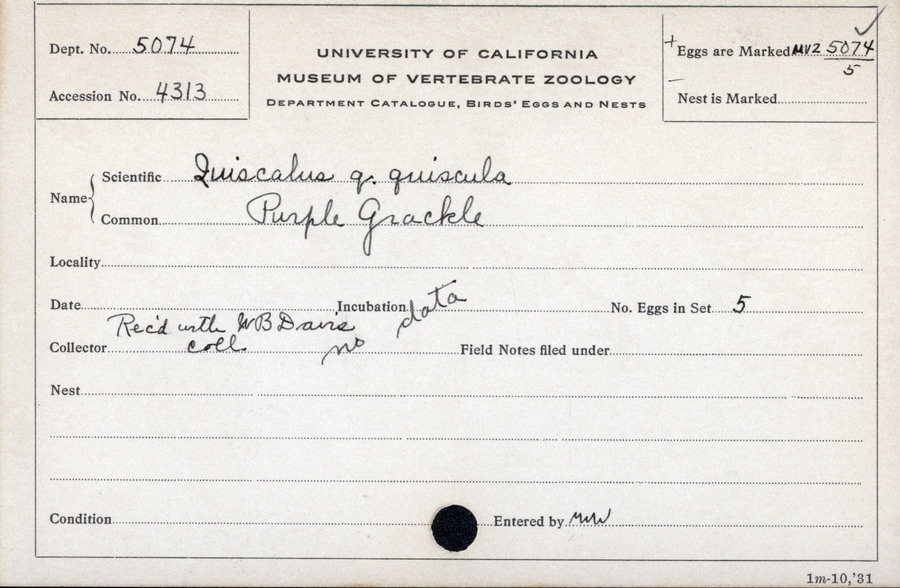 Dept. No. 5074
Accession No. 4313
UNIVERSITY OF CALIFORNIA
MUSEUM OF VERTEBRATE ZOOLOGY
DEPARTMENT CATALOGUE, BIRDS' EGGS AND NESTS
+ Eggs are Marked MVZ 5074/5
— Nest is Marked
Name
Scientific Quiscalus q. quiscula
Common Purple Grackle
Locality
Date Incubation No. Eggs in Set 5
Rec'd with WB Davis
Collector coll. Field Notes filed under
no data
Nest
Condition Entered by
1m-10,'31